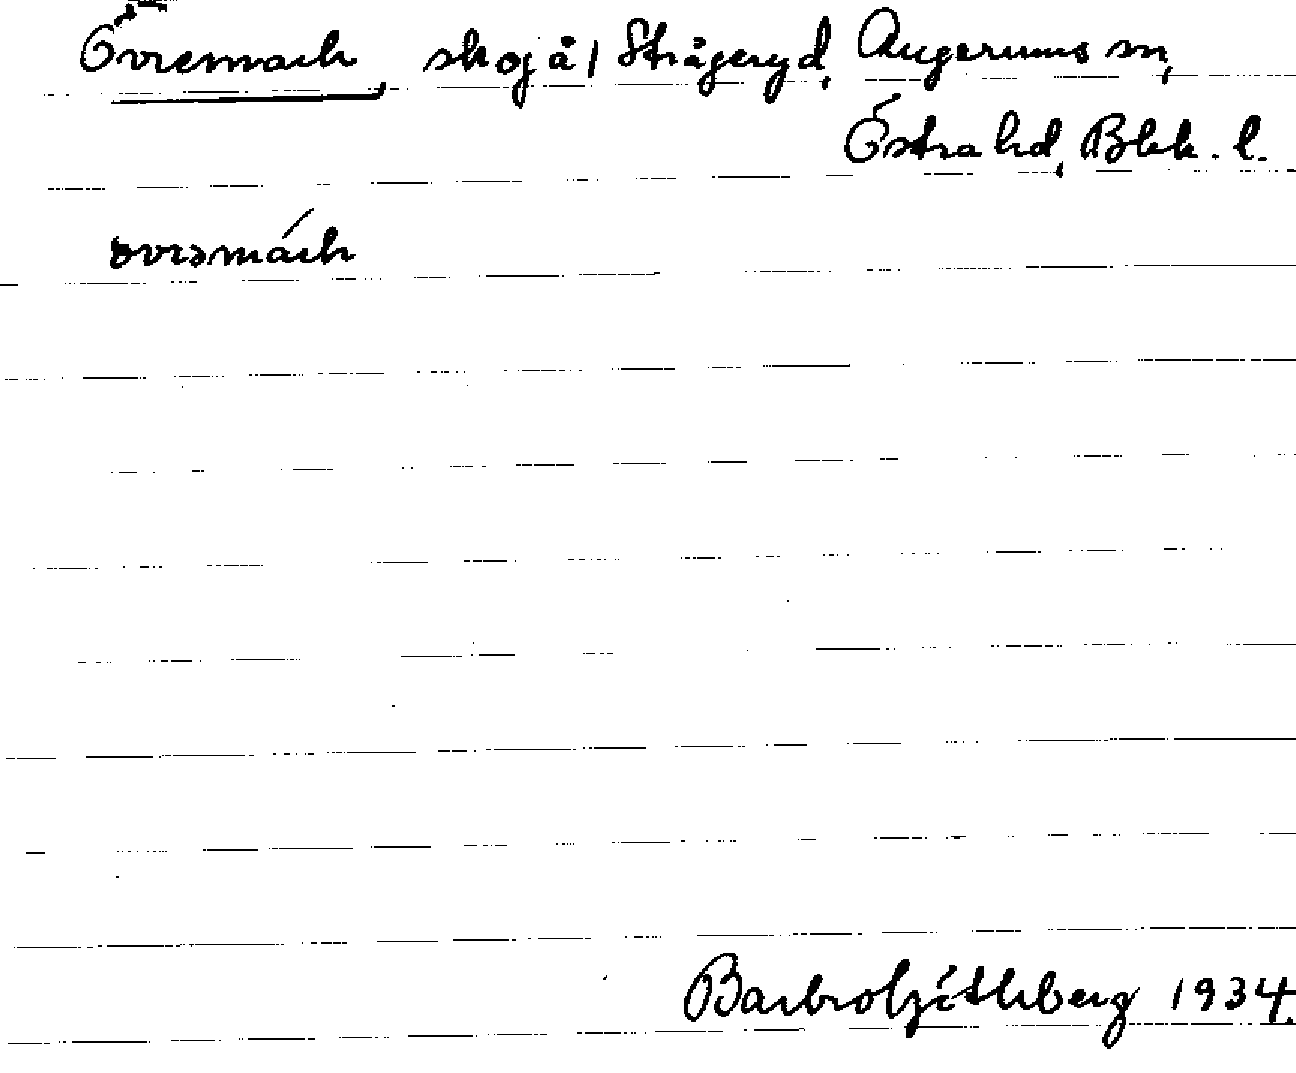 Övremach, skog å Strågeryd, Augerums sn,
Östra hd, Blek. l.
övrəmách
Barbro 1934.